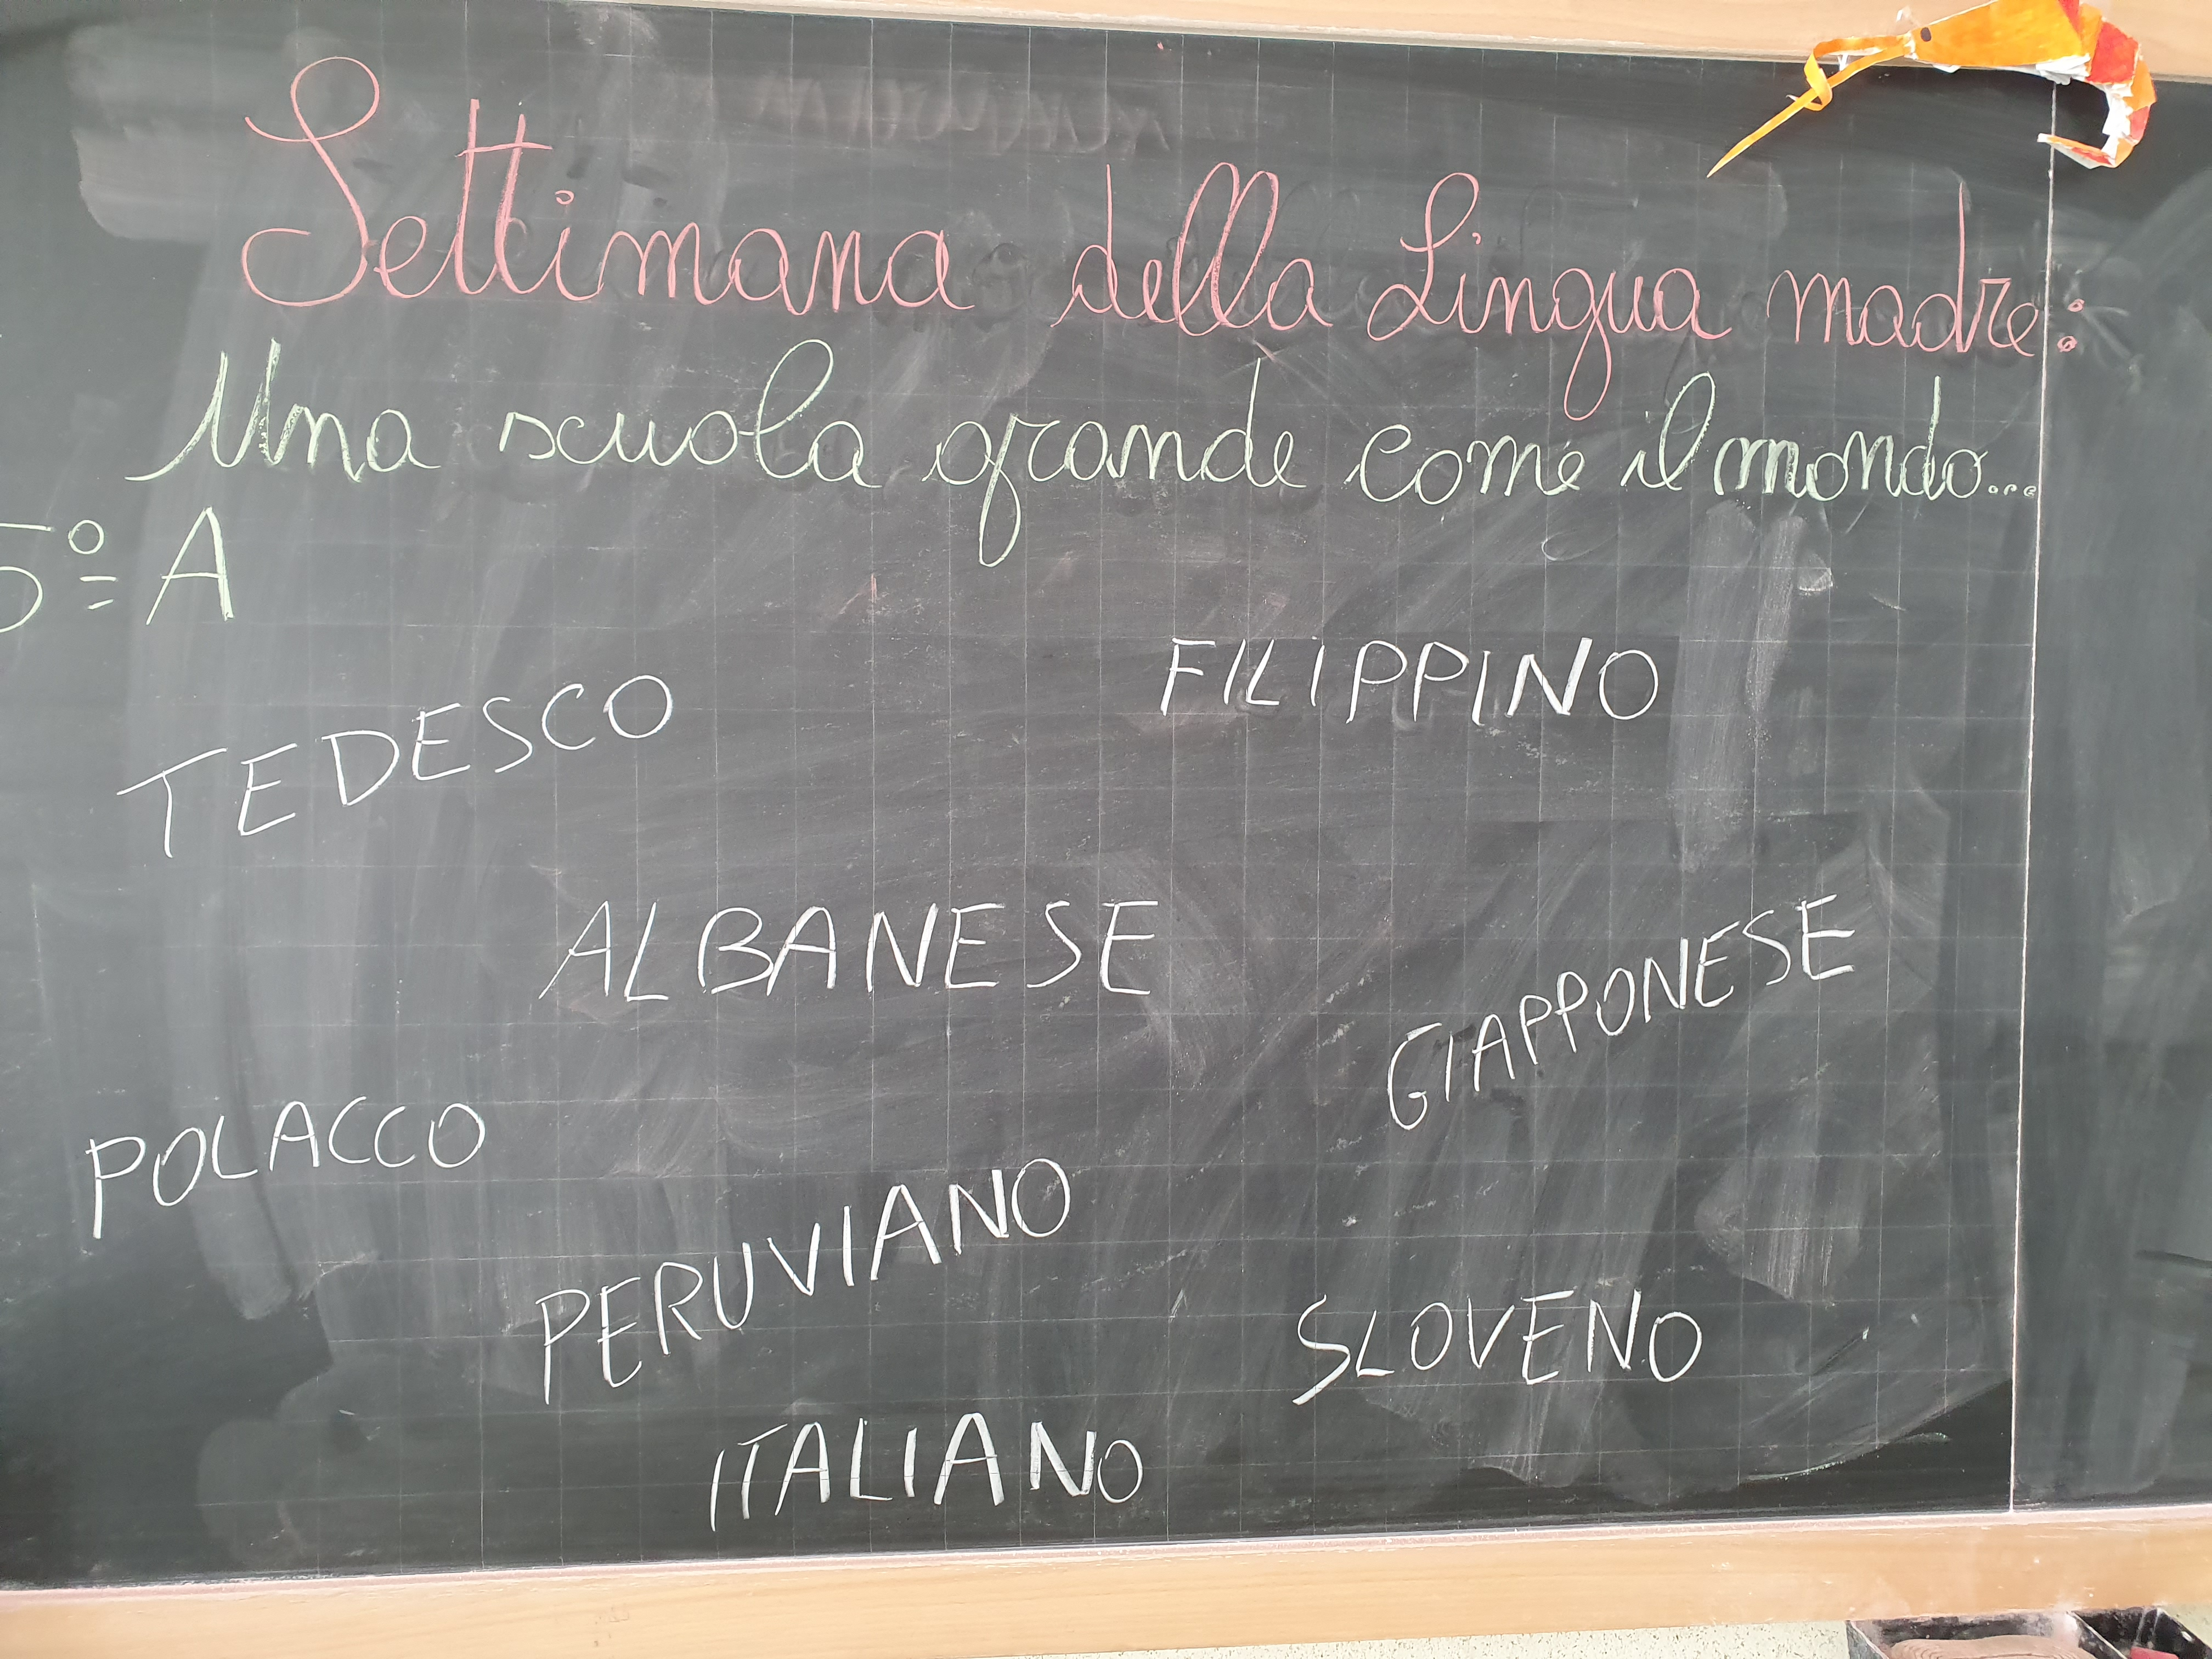 Settimana della Lingua madre:
Una scuola grande come il mondo...
5º A
TEDESCO
FILIPPINO
ALBANESE
GIAPPONESE
POLACCO
PERUVIANO
SLOVENO
ITALIANO